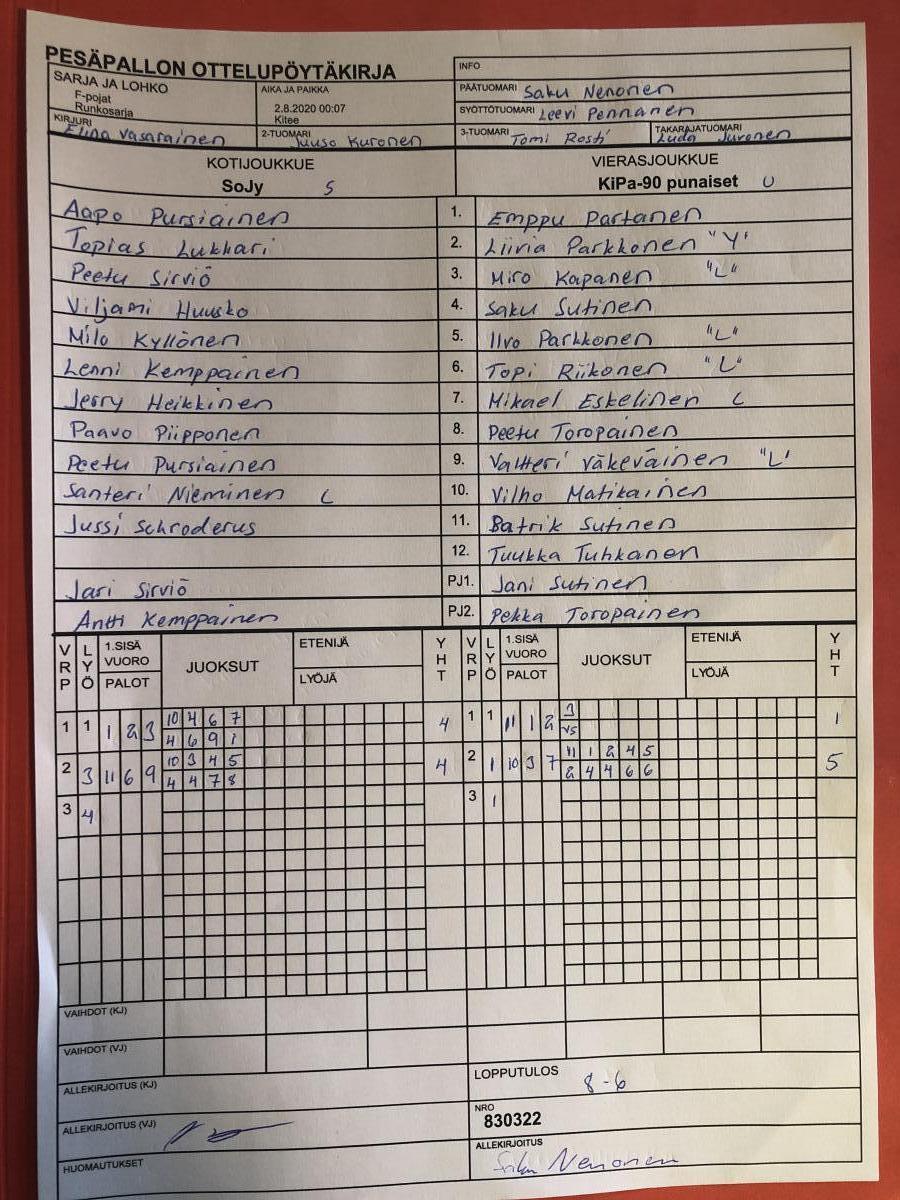 PESÄPALLON OTTELUPÖYTÄKIRJA
SARJA JA LOHKO
F-pojat
Runkosarja
AIKA JA PAIKKA
2.8.2020 00:07
Kitee
INFO
PÄÄTUOMARI Saku Nenonen
SYÖTTÖTUOMARI Leevi Pennanen
KIRJURI
Elina Vasarainen
2-TUOMARI Juuso Kuronen
3-TUOMARI Tomi Rosti
TAKARAJATUOMARI
Juronen
KOTIJOUKKUE
SoJy S
VIERASJOUKKUE
KiPa-90 punaiset U
Aapo Pursiainen 1. Emppu Partanen
Topias Lukkari 2. Liivia Parkkonen "Y"
Peetu Sirviö 3. Miro Kapanen "L"
Viljami Huusko 4. Saku Sutinen
Milo Kyllönen 5. Ilvo Parkkonen "L"
Lenni Kemppainen 6. Topi Riikonen "L"
Jerry Heikkinen 7. Mikael Eskelinen L
Paavo Piipponen 8. Peetu Toropainen
Peetu Pursiainen 9. Valtteri Väkeväinen "L"
Santeri Nieminen L 10. Vilho Matikainen
Jussi Schroderus 11. Patrik Sutinen
12. Tuukka Tuhkanen
Jari Sirviö PJ1. Jani Sutinen
Antti Kemppainen PJ2. Pekka Toropainen
VRP LYÖ 1.SISÄ VUORO PALOT JUOKSUT ETENIJÄ LYÖJÄ YHT
VRP LYÖ 1.SISÄ VUORO PALOT JUOKSUT ETENIJÄ LYÖJÄ YHT
1 1 1 2 3 10 4 6 7 4
4 6 9 1
1 1 11 1 2 3 1
V5
2 3 11 6 9 10 3 4 5 4
4 4 7 8
2 1 10 3 7 11 1 2 4 5 5
2 4 4 6 6
3 4
3 1
VAIHDOT (KJ)
VAIHDOT (VJ)
ALLEKIRJOITUS (KJ)
LOPPUTULOS 8-6
ALLEKIRJOITUS (VJ)
NRO
830322
HUOMAUTUKSET
ALLEKIRJOITUS
Saku Nenonen